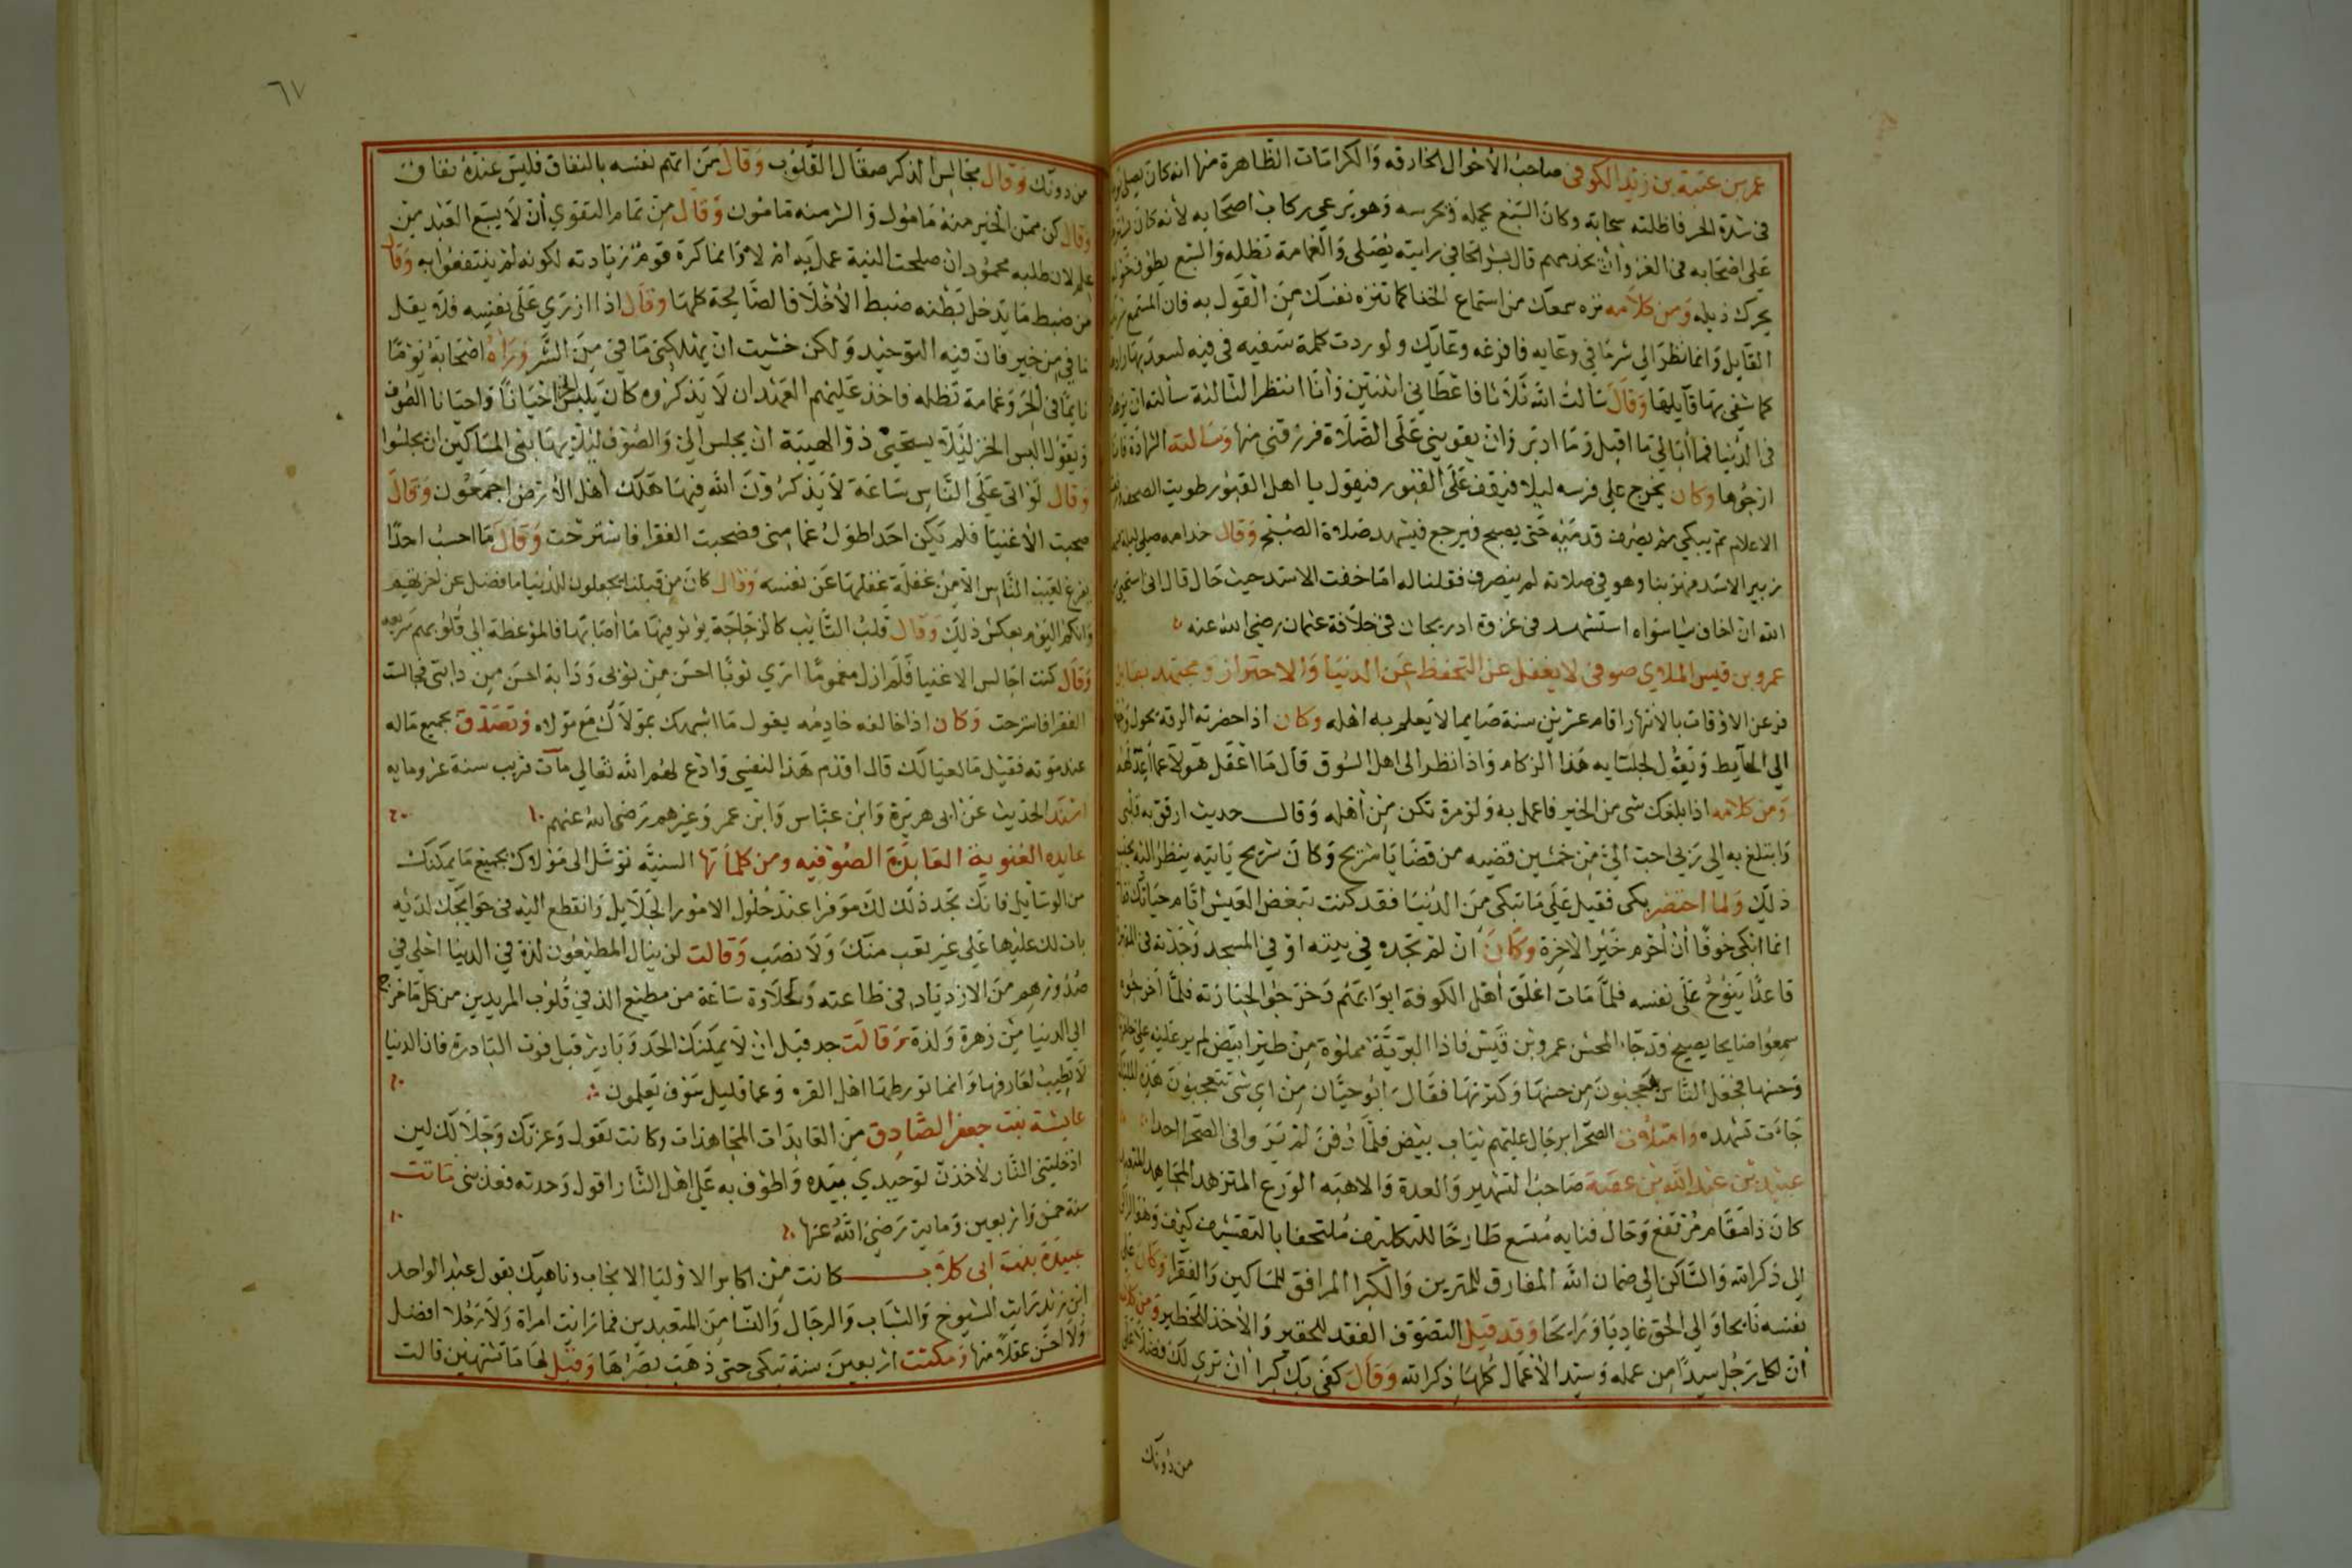 عمر بن عتبة بن زيد الكوفى صاحب الأحوال الخارقه والكرامات الظاهرة منها انه كان يصلى
فى شدة الحر فاظلته سحابة وكان السبع يحمله ويحرسه وهو يرعى ركاب اصحابه لأنه كان
على اصحابه فى الغزو أن يخدمهم قال بشر الحافى رايته يصلى والغمامة تظله والسبع يطوف حوله
يحرك ذيله ومن كلامه نزه سمعك من استماع الخنا كما تنزه نفسك من القول به فان المستمع
القايل وانما نظر الي شر ما في وعايه فافرغه وعايك ولو ردت كلمة سفيه فى فيه لسعد بها
كما شقى بها قآيلها وقال سالت الله ثلاثا فاعطاني اثنتين وأنا انتظر الثالثة سألته ان
فى الدنيا فما أبالي ما اقبل وما ادبر وان يقويني على الصلاة فرزقني منها وسالته الشهادة
ارجوها وكان يخرج على فرسه ليلا فيقف على القبور فيقول يا اهل القبور طويت الصحف
الاعلام ثم يبكي ثم يصرف قدميه حتى يصبح فيرجع فيشهد صلاة الصبح وقال خدامه صلى ليلة
زبير الاسد فهربنا وهو في صلاته لم ينصرف فقلنا له امّا خفت الاسد حيث حال قال انى استحيى
الله ان اخاف شيا سواه استشهد فى غزوة ادربجان فى خلافة عثمان رضي الله عنه
عمرو بن قيس الملاي صوفى لا يغفل عن التحفظ عن الدنيا والاحتراز ومجتهد
عن الاوقات بالانتهار اقام عشرين سنة صايما لا يعلم به اهله وكان اذا حضرته الرقة يحول
الي الحآيط ويقول لجلسايه هذا الزكام واذا نظر الى اهل السوق قال ما اغفل هولآ عما أعد لهم
ومن كلامه اذا بلغك شى من الخير فاعمل به ولو مرة تكن من أهله وقال حديث ارقق به قلبى
وابتلغ به الي ربى احب الىّ من خمسين قضيه من قضايا شريح وكان شريح ياتيه ينظر اليه
ذلك ولما احتضر بكى فقيل على ما تبكى من الدنيا فقد كنت تبغض العيش ايام حياتك
انما ابكى خوفا أن أحرم خير الاخرة وكان ان لم تجده في بيته او في المسجد وجدته فى
قاعدا ينوح على نفسه فلما مات اغلق أهل الكوفة ابوابهم وخرجوا لجنازته فلما اخرجوه
سمعوا صايحا يصيح قد جا المحسن عمرو بن قيس فاذا البرية مملوة من طير ابيض لم ير عليه على
وحسنها فجعل الناس يتعجبون من حسنها وكثرتها فقال ابو حيان من اي شى تتعجبون هذه
جاءت تشهده وامتلأت الصحرا برجال عليهم ثياب بيض فلما دفن لم ير وا فى الصحرا احدا
عبيد بن عبد الله بن عقبة صاحب التشهير والعدة والاهبه الورع المتزهد المجاهد
كان ذا مقام مرتفع وحال فنايه متسع طارحا للتكاليف ملتحفا بالتقشف كيف وهو
الى ذكر الله والساكن الي ضمان الله المفارق للمترين والكبرا المرافق للمساكين والفقرا وكان على
نفسه نايحا والي الحق غاديا ورايحا وقد قيل التصوف الفقد للحقير والأخذ للخطير ومن كلامه
أن لكل رجل سيدا من عمله وسيد الأعمال كلها ذكر الله وقال كفى بك كبرا أن تري لك فضلا على
من دونك
٦٧
من دونك وقال مجالس الذكر صقال القلوب وقال من اتهم نفسه بالنفاق فليس عنده نفاق
وقال كن ممن الخير منه مامول والشر منه مامون وقال من تمام التقوي أن لا يبتغ العبد من
علم لان طلبه محمود ان صلحت النية عمل به ام لا وانما كره قوم زيادته لكونه لم ينتفعوا به وقال
من ضبط ما يدخل بطنه ضبط الأخلاق الصالحة كلها وقال اذا ازري على نفسه فلا يقل
ما في من خير فان فيه التوحيد ولكن خشيت ان يهلكنى ما في من الشر وراه اصحابه يوما
نايما في الحر وغمامة تظله فاخذ عليهم العهد ان لا يذكروه كان يلبس الخز احيانا واحيانا الصوف
ويقول البس الخز ليلا يستحيى ذو الهيبة ان يجلس الي والصوف ليلا يهابني المساكين ان يجلسوا
وقال لو اتى على الناس ساعة لا يذكرون الله فيها هلك أهل الارض اجمعون وقال
صحبت الأغنيا فلم يكن احد اطول غما منى وصحبت الفقرا فاسترحت وقال ما احسب احدا
يفرغ لعيب الناس الا من غفلة غفلها عن نفسه وقال كان من قبلنا يجعلون للدنيا ما فضل عن اخرتهم
وانكم اليوم بعكس ذلك وقال قلب التايب كالزجاجة يوثر فيها ما أصابها فالموعظة الي قلوبهم سريعه
وقال كنت اجالس الاغنيا فلم ازل مغموما اري ثوبا احسن من ثوبى ودابة احسن من دابتى فجالست
الفقرا فاسترحت وكان اذا خالفه خادمه يقول ما اشبهك بمولاك مع مولاه وتصدق بجميع ماله
عند موته فقيل ما لعيالك قال اقدم هذا لنفسى وادع لهم الله تعالي مآت قريب سنة عز ومايه
اسند الحديث عن ابى هريرة وابن عباس وابن عمر وغيرهم رضي الله عنهم
عابده الغنوية العابدة الصوفيه ومن كلماتها السنيّه توسّل الى مولاك بجميع ما يمكنك
من الوسايل فانك تجد ذلك لك موفرا عند حلول الامور الجلايل وانقطع اليه فى حوايجك لديه
يات لك عليها على غير تعب منك ولا نصب وقالت لن ينال المطيعون لذة في الدنيا احلي في
صدورهم من الازدياد في طاعته ولحلاوة ساعة من مطيع الذ في قلوب المريدين من كل ما خرج
الي الدنيا من زهرة ولذة وقالت جد قبل ان لا يمكنك الجد وبادر قبل فوت البادرة فان الدنيا
لا تطيب لعارفها وانما تورطها اهل الغره وعما قليل سوف تعلمون
عايشة بنت جعفر الصادق من العابدات المجاهدات وكانت تقول وعزتك وجلالك لين
ادخلتنى النار لأخذن توحيدي بيده واطوف به على اهل النار اقول وحدته فعذبنى ماتت
سنة خمس واربعين وماية رضي الله عنها
عبيدة بنت ابى كلاب كانت من اكابر الاوليا الانجاب وناهيك بقول عبد الواحد
ابن زيد رايت الشيوخ والشباب والرجال والنسا من المتعبدين فما رايت امراة ولا رجلا افضل
ولا احسن عقلا منها ومكثت اربعين سنة تبكى حتى ذهب بصرها وقيل لها ما تشتهين قالت